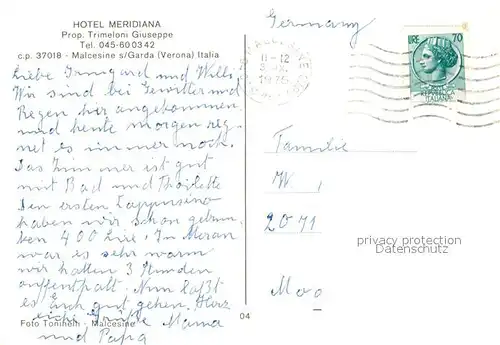 HOTEL MERIDIANA
Prop. Trimeloni Giuseppe
Tel. 045-600342
c.p. 37018 - Malcesine s/Garda (Verona) Italia
Liebe Irmgard und Willi
Wir sind bei Gewitter und
Regen hir angekommen
und heute morgen reg-
net es immer noch.
Das Zimmer ist gut
mit Bad und Thoilette
Den ersten Cappusino
haben wir schon getrun
ken 400 Lire. In Meran
war es sehr warm
wir hatten 3 Stunden
auffenthalt. Nun laßt
es Euch gut gehen. Herz
liche Grüße Mama
und Papa
Foto Tonincelli - Malcesine
04
Germany
11-12
LIRE 70
REPUBBLICA
ITALIANA
Familie
W
2071
Moo
privacy protection
Datenschutz